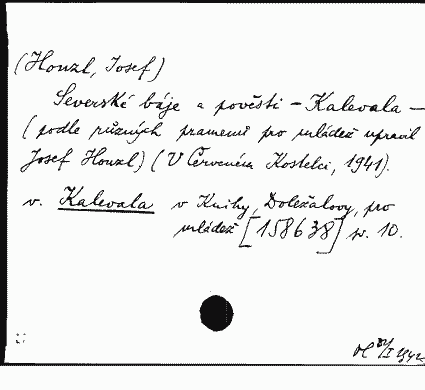 (Honzl, Josef)
Severské báje a pověsti - Kalevala -
(podle různých pramenů pro mládež upravil
Josef Honzl) (V Červeném Kostelci, 1941).
v. Kalevala v Knihy Doležalovy, pro
mládež [158638] sv. 10.